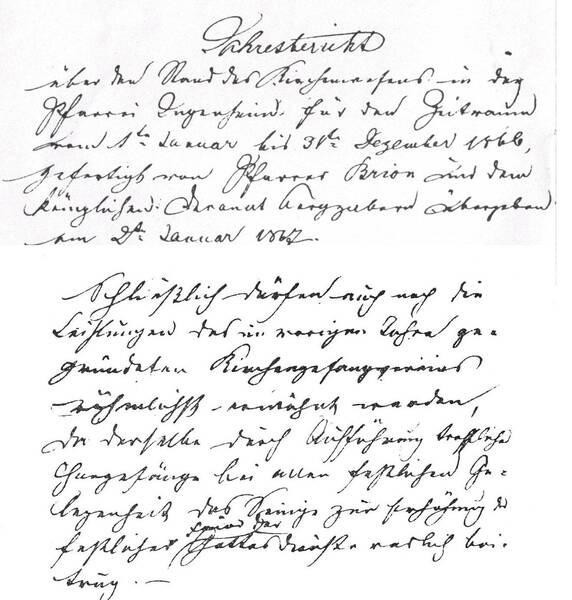 Jahresbericht
über den Stand des Kirchenwesens in der
Pfarrei Ingenheim für den Zeitraum
vom 1ten Januar bis 31ten Dezember 1866,
gefertigt von Pfarrer Brion und dem
königlichen Decanat Bergzabern übergeben
am 2ten Januar 1867.
Schließlich dürfen auch noch die
Leistungen des im vorigen Jahre ge-
gründeten Kirchengesangvereins
rühmlichst erwähnt werden,
da derselbe durch Aufführung trefflicher
Chorgesänge bei allen festlichen Ge-
legenheit das Seinige zur Erhöhung der
Feier der
festlichen Gottesdienste redlich bei-
trug. —